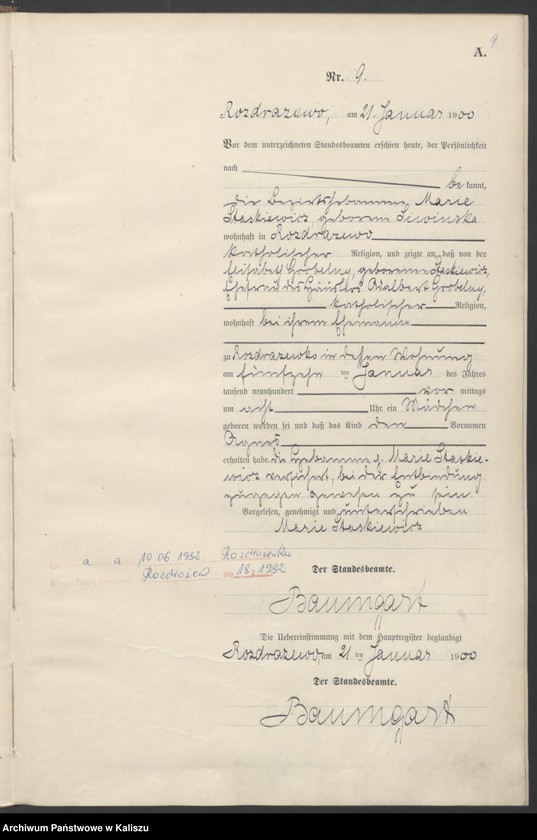 9
A.
Nr. 9.
Rozdrazewo, am 21. Januar 1900
Vor dem unterzeichneten Standesbeamten erschien heute, der Persönlichkeit
nach
be kannt,
die Bezirkshebamme Marie
Staskiewicz, geborene Siwinska
wohnhaft in Rozdrazewo
katholischer Religion, und zeigte an, daß von der
Elisabeth Grobelny, geborenen Staskiewicz,
Ehefrau des Häuslers Adalbert Grobelny,
katholischer Religion,
wohnhaft bei ihrem Ehemanne
zu Rozdrazewko in dessen Wohnung
am fünfzehn ten Januar des Jahres
tausend neunhundert vor mittags
um acht Uhr ein Mädchen
geboren worden sei und daß das Kind den Vornamen
Agnes
erhalten habe. die Hebamme g. Marie Staskie-
wicz versichert, bei der Entbindung
zugegen gewesen zu sein.
Vorgelesen, genehmigt und unterschrieben
Marie Staskiewicz
a a 10 06 1982 Rozdrażewku
Rozdrażew 18/1982
Der Standesbeamte.
Baumgart
Die Uebereinstimmung mit dem Hauptregister beglaubigt
Rozdrazewo, am 21 ten Januar 1900
Der Standesbeamte.
Baumgart
Archiwum Państwowe w Kaliszu